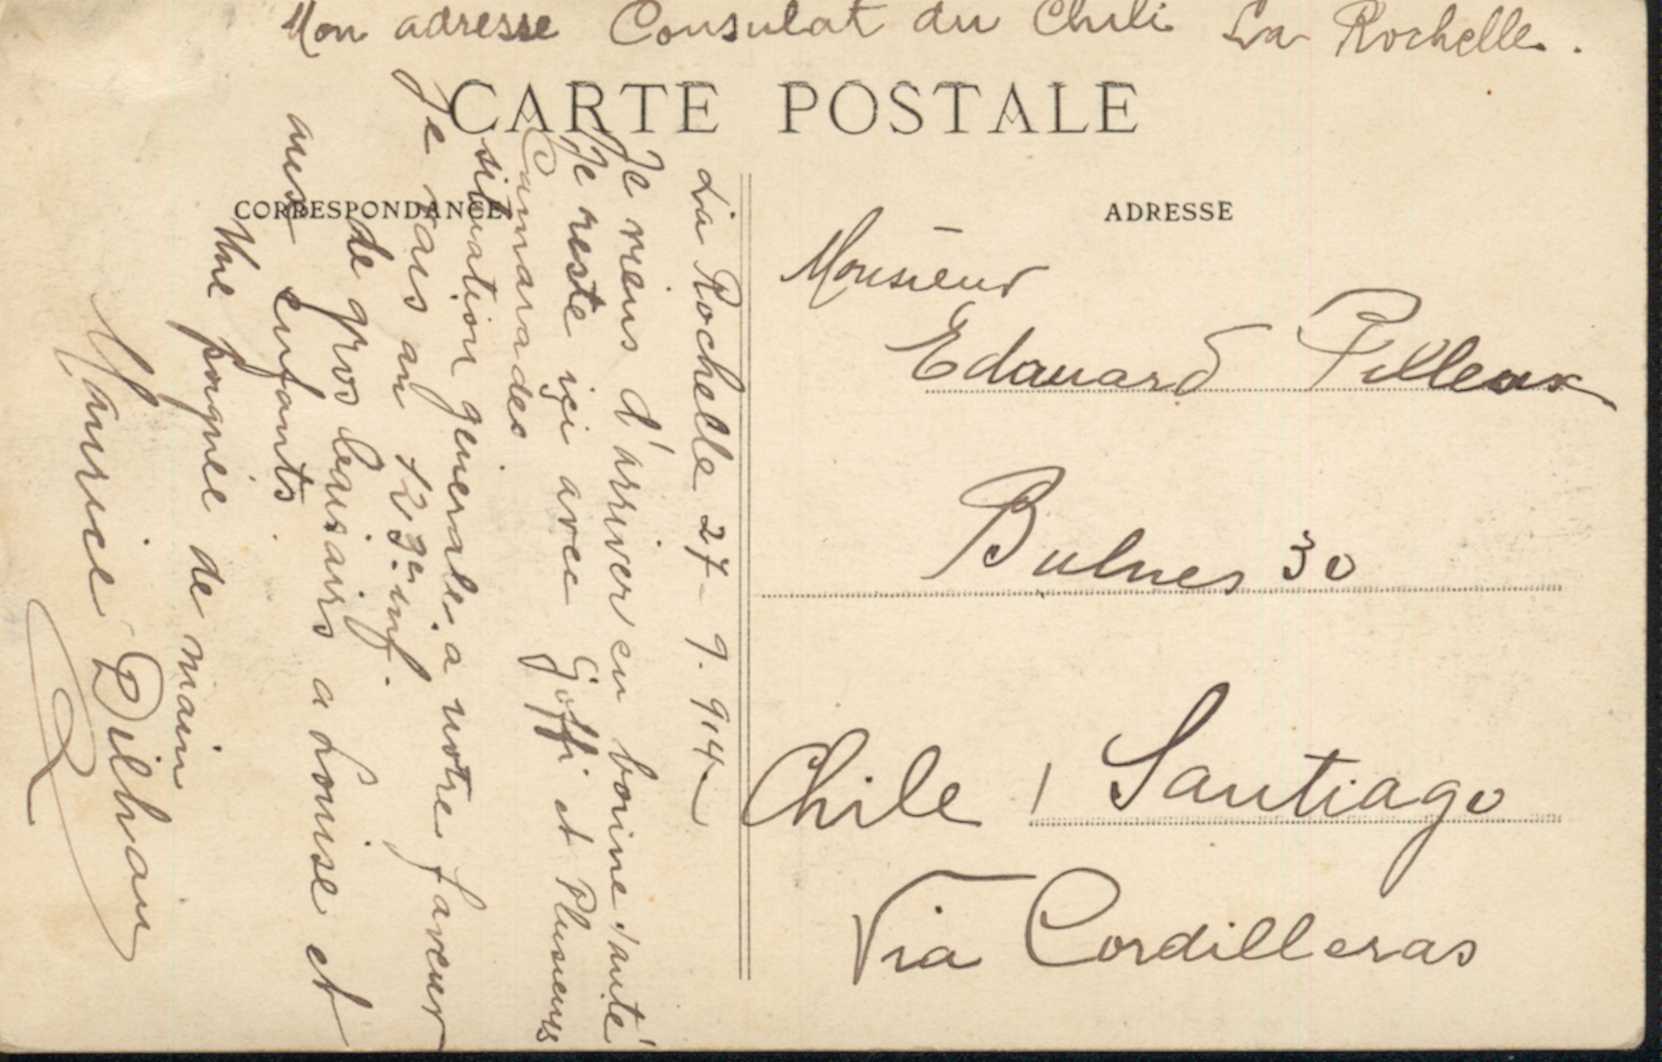 Mon adresse Consulat du Chili La Rochelle.
CARTE POSTALE
CORRESPONDANCE
ADRESSE
La Rochelle 27-9.914
Je viens d'arriver en bonne santé
Je reste içi avec Goffi et Plusieurs
Cammarades
situation generale a notre faveur
Je vais au 123e inf.
de gros baisairs a Louise et
aux enfants.
Une poignée de main
Maurice Dilhain
Monsieur
Edouard Pilleux
Bulnes 30
Chile / Santiago
Via Cordilleras